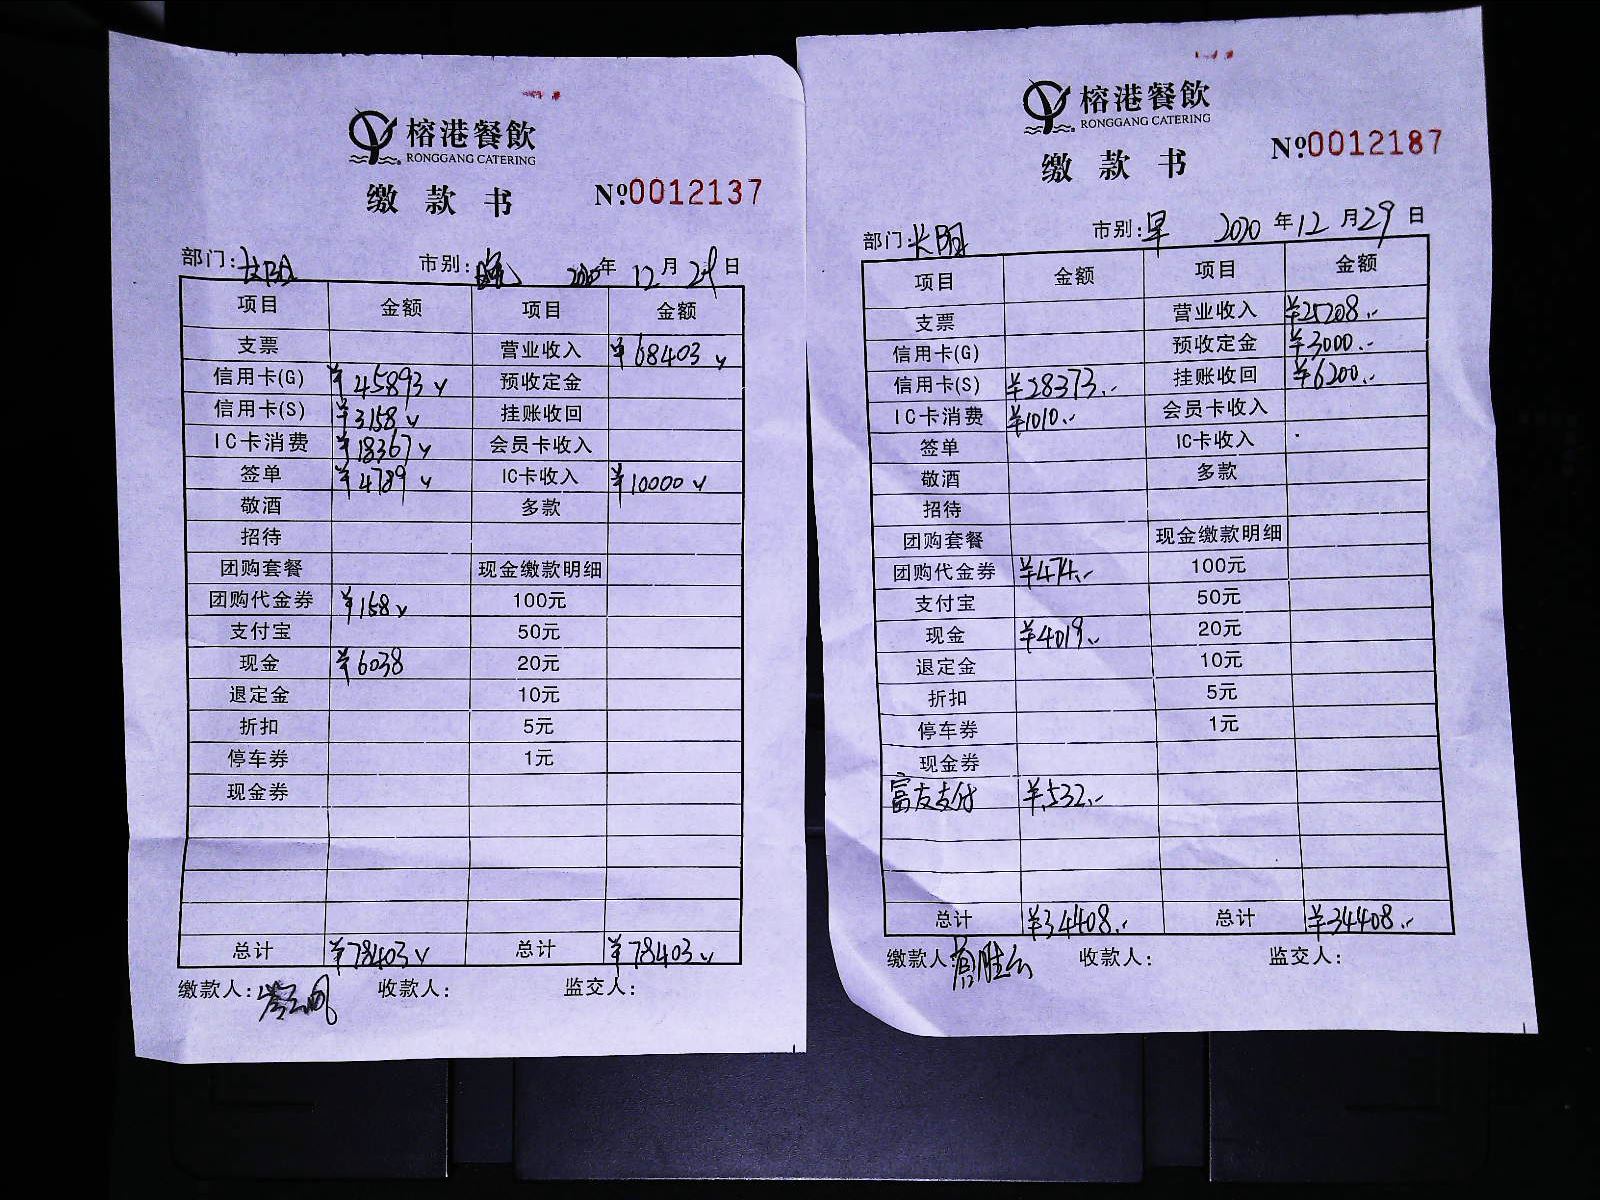 榕港餐飲
RONGGANG CATERING
缴款书 №0012137
部门: 长阳 市别: 晚 2020年 12月 29日
项目 金额 项目 金额
支票 营业收入 ¥68403
信用卡(G) ¥45893 预收定金
信用卡(S) ¥3158 挂账收回
IC卡消费 ¥18367 会员卡收入
签单 ¥4789 IC卡收入 ¥10000
敬酒 多款
招待
团购套餐 现金缴款明细
团购代金券 ¥158 100元
支付宝 50元
现金 ¥6038 20元
退定金 10元
折扣 5元
停车券 1元
现金券
总计 ¥78403 总计 ¥78403
缴款人: 收款人: 监交人:
榕港餐飲
RONGGANG CATERING
缴款书 №0012187
部门: 长阳 市别: 早 2020年12月29日
项目 金额 项目 金额
支票 营业收入 ¥25208.-
信用卡(G) 预收定金 ¥3000.-
信用卡(S) ¥28373.- 挂账收回 ¥6200.-
IC卡消费 ¥1010.- 会员卡收入
签单 IC卡收入
敬酒 多款
招待
团购套餐 现金缴款明细
团购代金券 ¥474.- 100元
支付宝 50元
现金 ¥4019.- 20元
退定金 10元
折扣 5元
停车券 1元
现金券
富友支付 ¥532.-
总计 ¥34408.- 总计 ¥34408.-
缴款人: 收款人: 监交人: